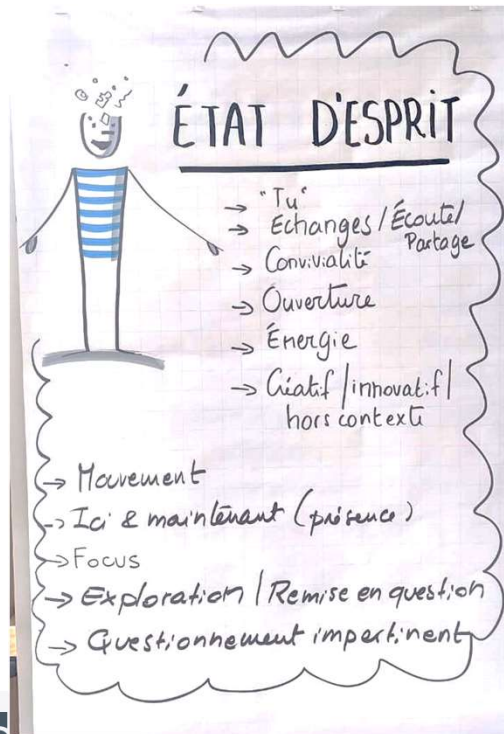 ÉTAT D'ESPRIT
→ "Tu"
→ Echanges / Écoute /
Partage
→ Convivialité
→ Ouverture
→ Énergie
→ Créatif / innovatif /
hors contexte
→ Mouvement
→ Ici & maintenant (présence)
→ Focus
→ Exploration / Remise en question
→ Questionnement impertinent